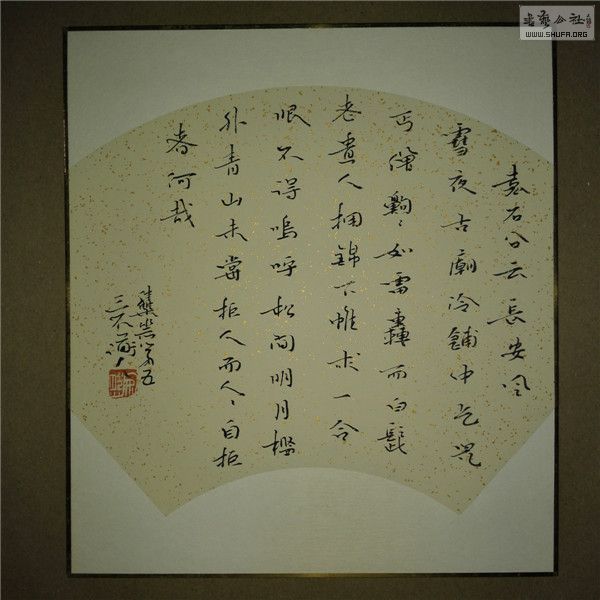 袁石公云長安風
雪夜古廟冷鋪中乞兒
丐僧齁〻如雷轟而白髭
老貴人拥錦下帷求一合
眼不得嗚呼松間明月檻
外青山未嘗拒人而人〻自拒
者何哉
書藝公社
WWW.SHUFA.ORG